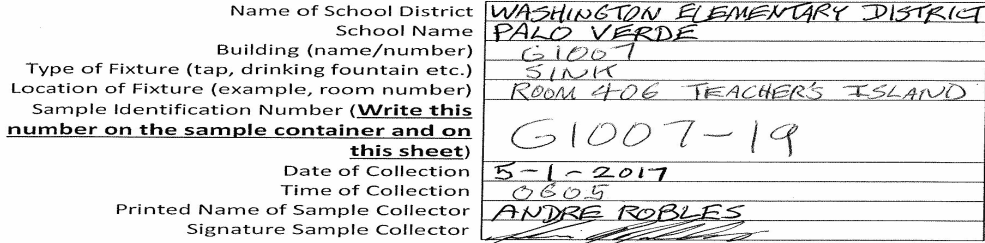 Name of School District WASHINGTON ELEMENTARY DISTRICT
School Name PALO VERDE
Building (name/number) G1007
Type of Fixture (tap, drinking fountain etc.) SINK
Location of Fixture (example, room number) ROOM 406 TEACHER'S ISLAND
Sample Identification Number (Write this
number on the sample container and on
this sheet) G1007-19
Date of Collection 5-1-2017
Time of Collection 0605
Printed Name of Sample Collector ANDRE ROBLES
Signature Sample Collector